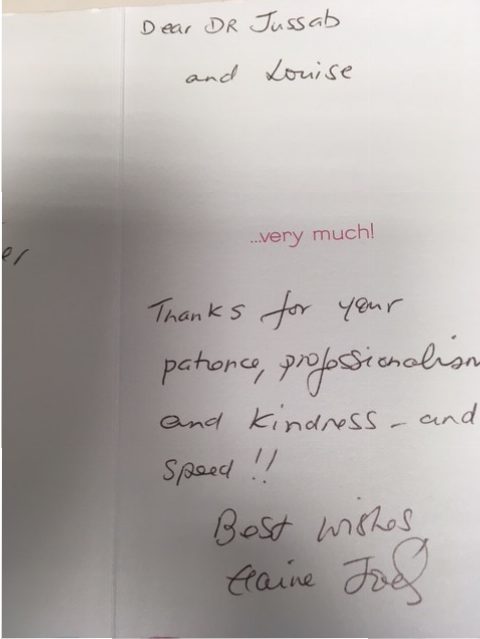 Dear DR Jussab
and Louise
...very much!
er
Thanks for your
patience, professionalism
and kindness - and
speed !!
Best wishes
Elaine